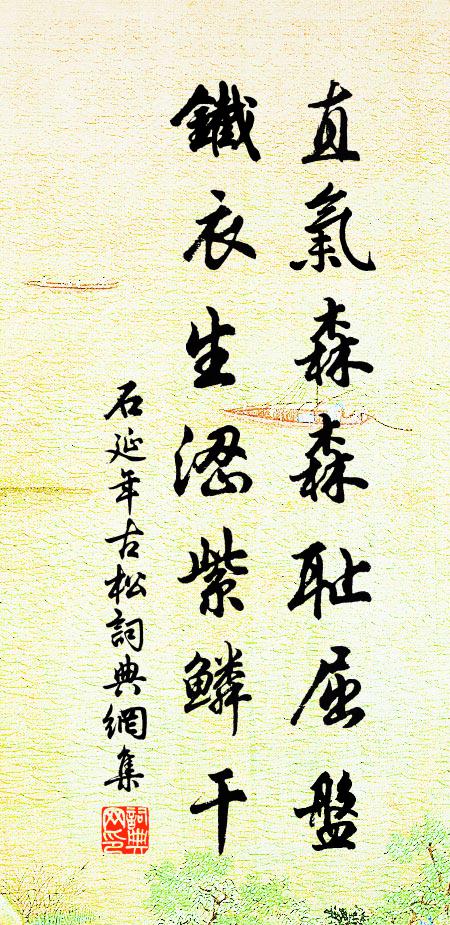 直氣森森耻屈盤
鐵衣生澀紫鱗干
石延年古松詞典網集
詞典
网印